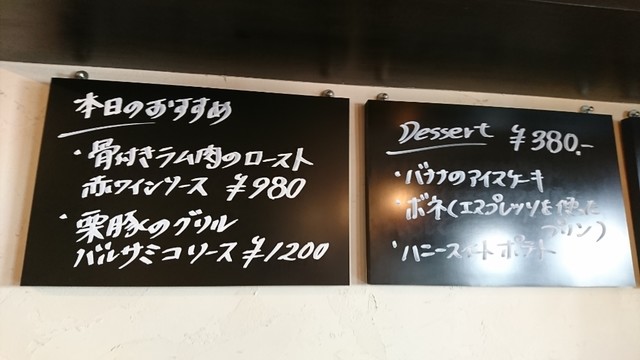 本日のおすすめ
・骨付きラム肉のロースト
赤ワインソース ¥980
・栗豚のグリル
バルサミコソース ¥1200
Dessert ¥380.-
・バナナのアイスケーキ
・ボネ(エスプレッソを使った
プリン)
・ハニースイートポテト